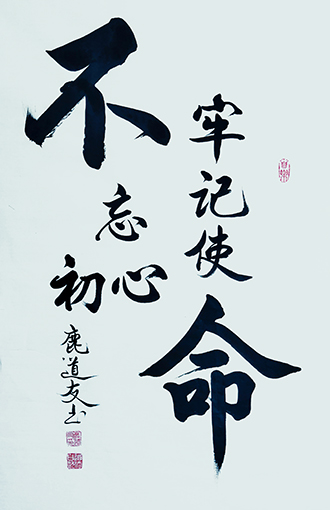 牢记使命
不忘初心
鹿道友书